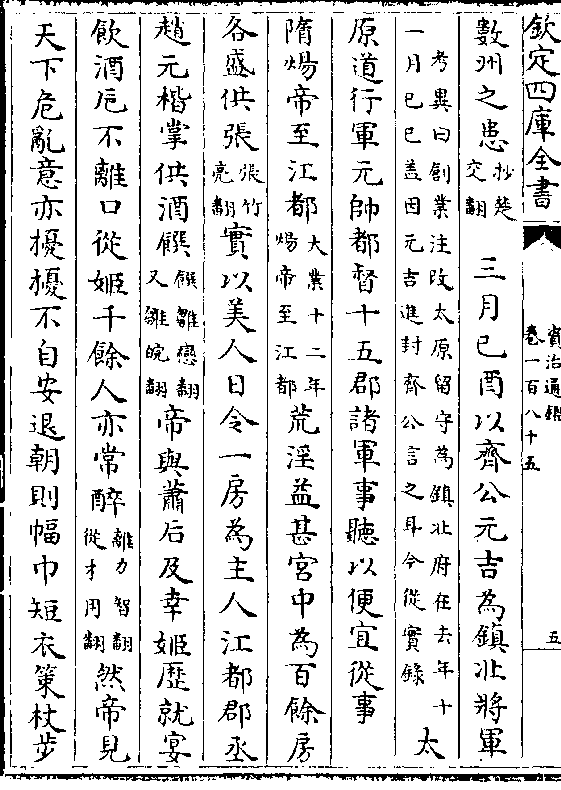 欽定四庫全書
資治通鑑
卷一百八十五
五
數州之患抄楚交翻　三月己酉以齊公元吉為鎮北將軍太
考異曰創業注改太原留守為鎮北府在去年十
一月己巳蓋因元吉進封齊公言之耳今從實錄
原道行軍元帥都督十五郡諸軍事聽以便宜從事
隋煬帝至江都大業十二年煬帝至江都荒淫益甚宮中為百餘房
各盛供張張竹亮翻實以美人日令一房為主人江都郡丞
趙元楷掌供酒饌饌雛戀翻又雛皖翻帝與蕭后及幸姬歷就宴
飲酒巵不離口從姬千餘人亦常醉離力智翻從才用翻然帝見
天下危亂意亦擾擾不自安退朝則幅巾短衣策杖步